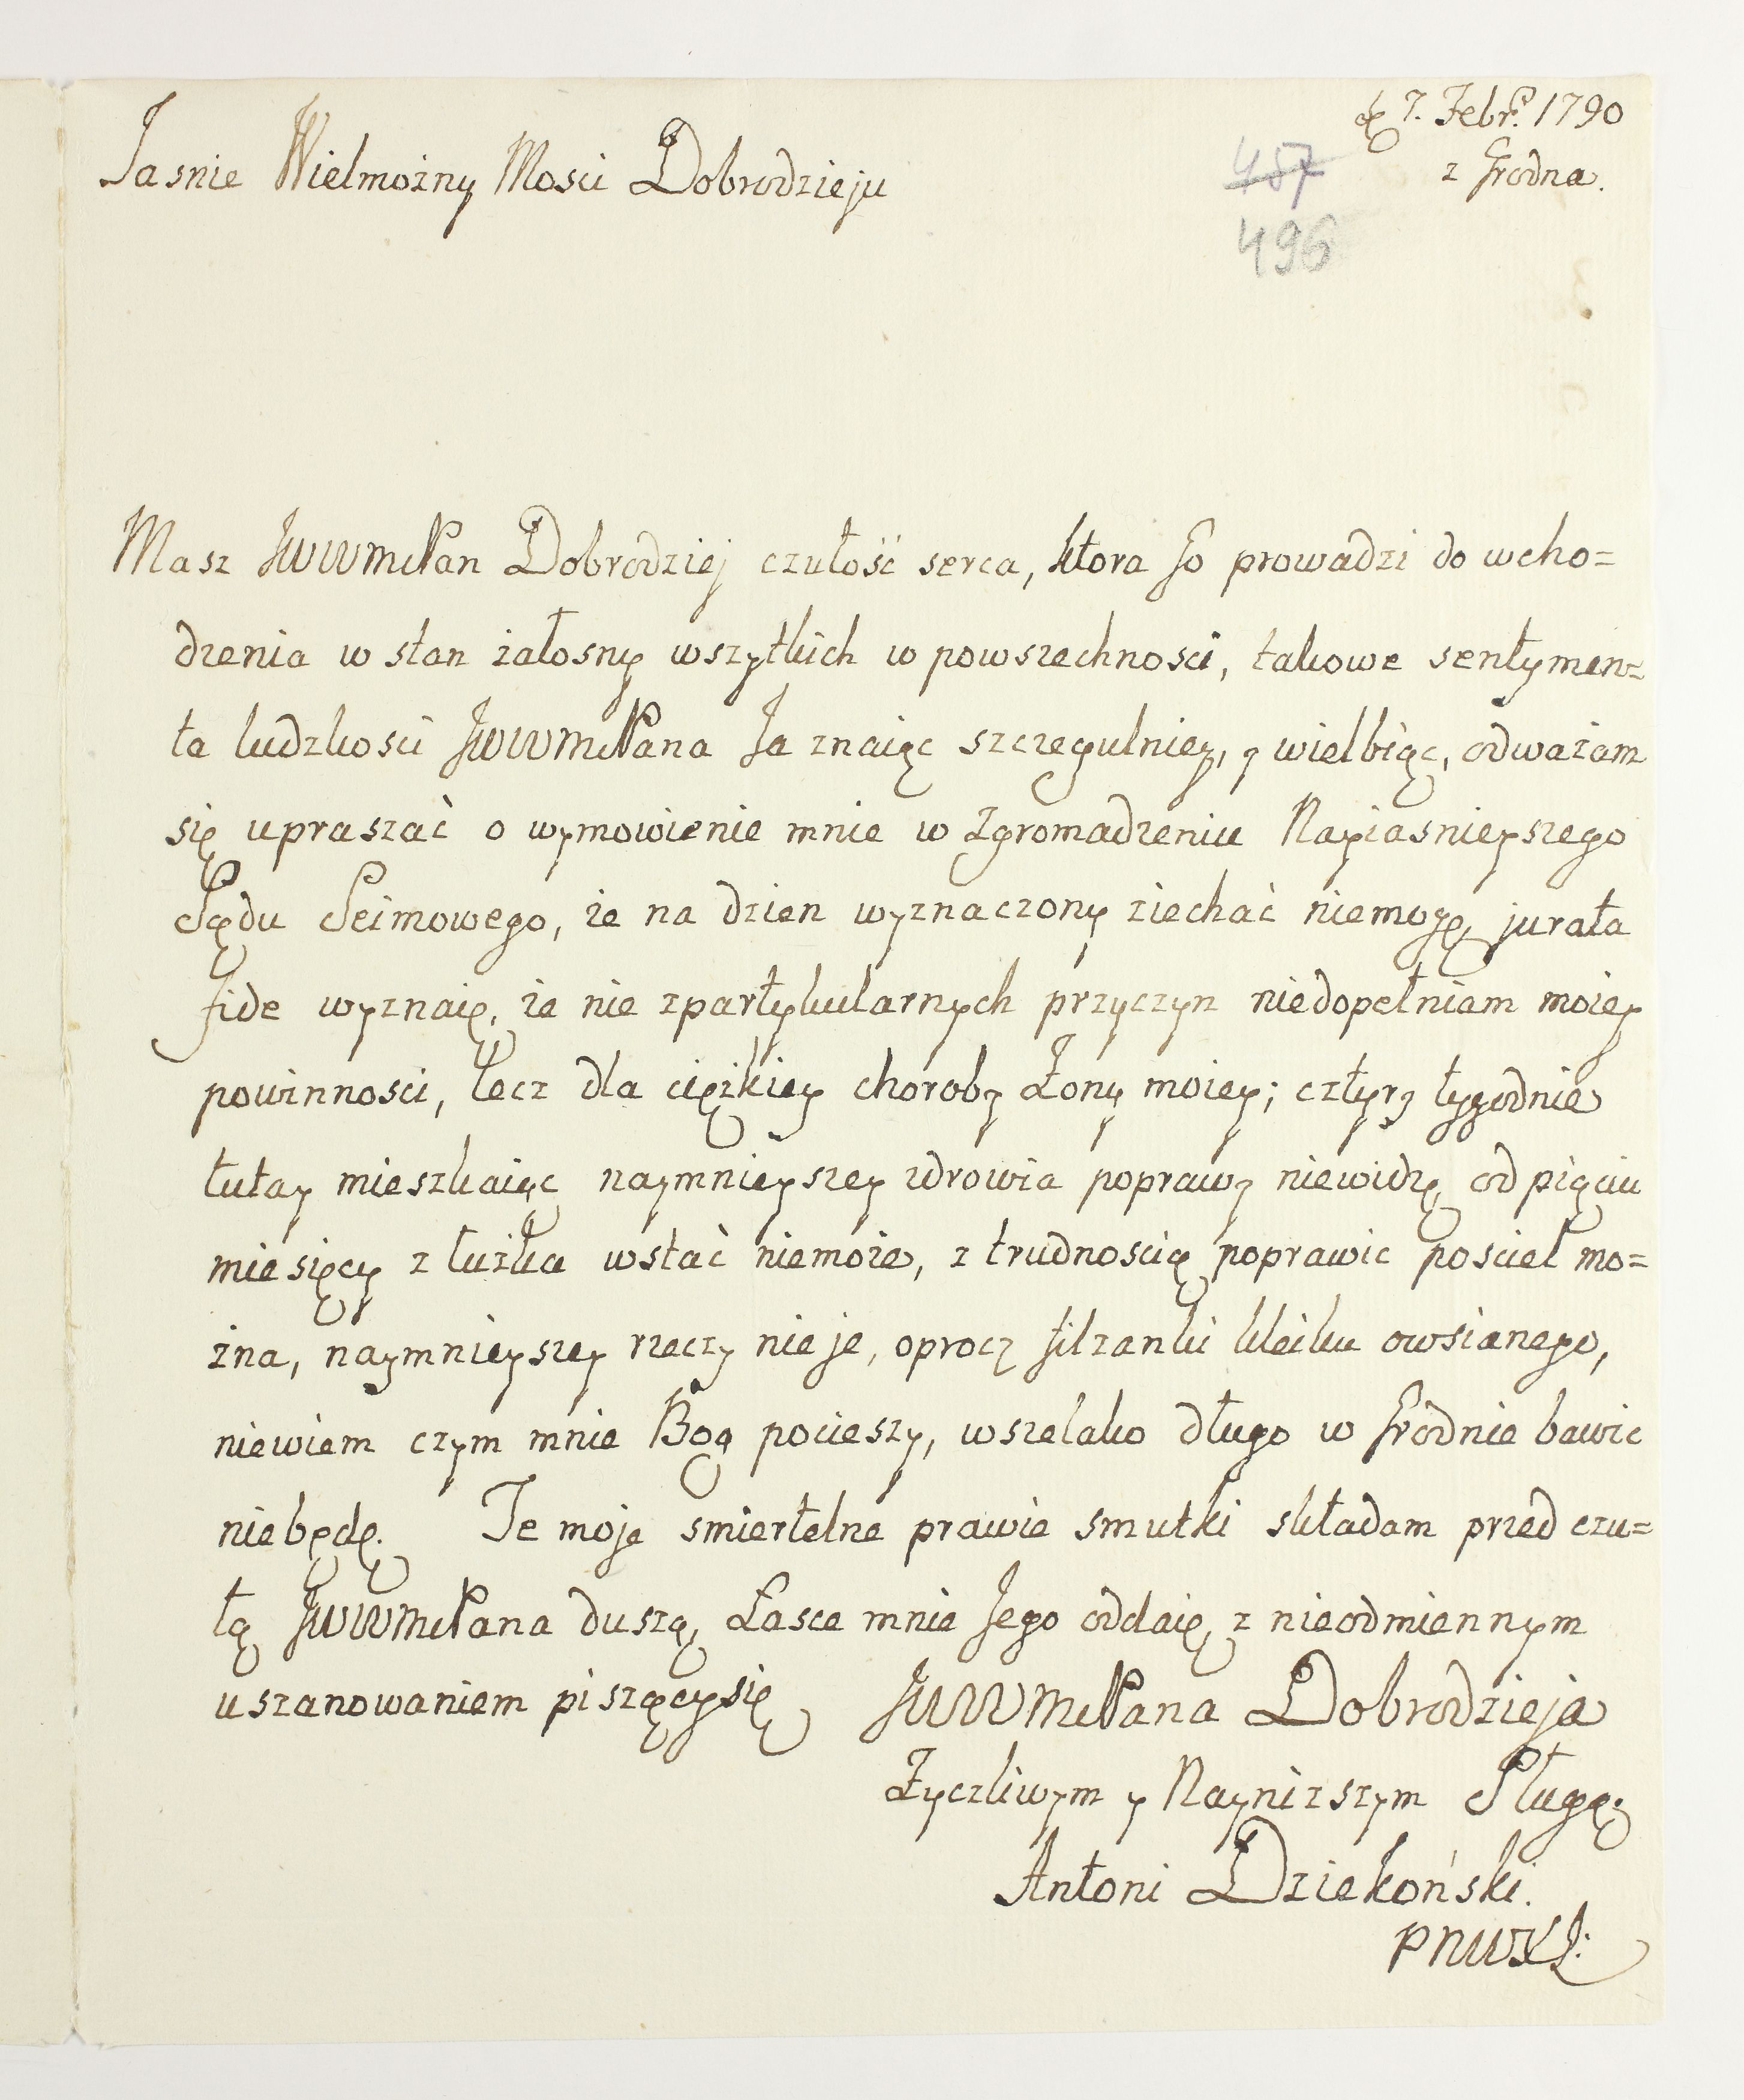 d. 7. Febr. 1790
z Grodna.
Jasnie Wielmożny Mosci Dobrodzieju
457
496
Masz JWWMcPan Dobrodziej czułość serca, ktora Go prowadzi do wcho=
dzenia w stan żałosny wszytkich w powszechnosci, takowe sentymen=
ta ludzkosci JWWMcPana Ja znaiąc szczegulniey, y wielbiąc, odważam
się upraszać o wymowienie mnie w Zgromadzeniu Nayiasnieyszego
Sądu Seimowego, że na dzien wyznaczony ziechać niemogę, jurata
fide wyznaię, że nie zpartykularnych przyczyn niedopełniam moiey
powinnosci, lecz dla ciężkiey choroby Żony moiey; cztyry tygodnie
tutay mieszkaiąc naymnieyszey zdrowia poprawy niewidzę, od pięciu
miesięcy z łużka wstać niemoże, z trudnoscią poprawic posciel mo=
żna, naymnieyszey rzeczy nie je, oprocz filżanki kleiku owsianego,
niewiem czym mnie Bog pocieszy, wszelako długo w Grodnie bawic
niebędę. Te moje smiertelne prawie smutki składam przed czu=
łą JWWMcPana duszą, Łasce mnie Jego oddaię, z nieodmiennym
uszanowaniem piszący się JWWMcPana Dobrodzieja
Życzliwym y Nayniższym Sługą.
Antoni Dziekoński.
PNWXL: